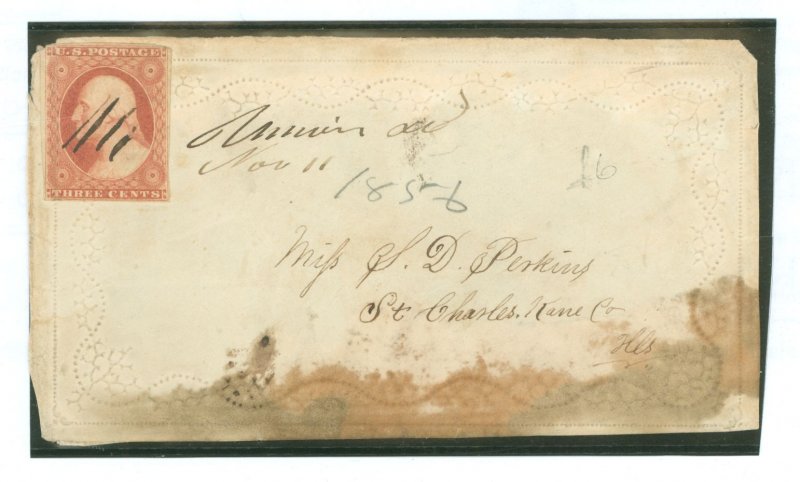 U.S. POSTAGE
THREE CENTS
Nov 11
185
16
Miss S. D. Perkins
St Charles. Kane Co
Ills